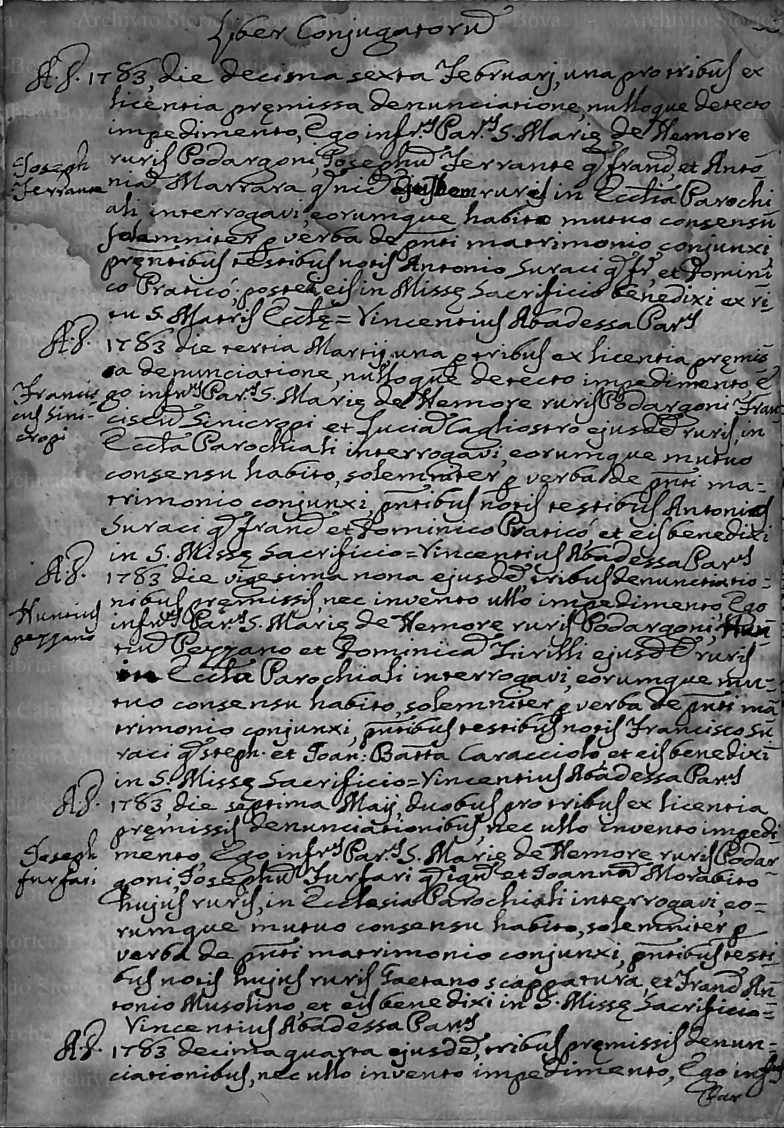 Liber Conjugatorũ
A. D. 1783, die decima sexta Februarj, una pro tribus ex
licentia pręmissa denunciatione, nulloque detecto
impedimento, Ego infr.s Par.s S. Marię de Nemore
Joseph
Ferrante
ruris Podargoni, Josephũ Ferrante q̃ Franc̃, et Anto-
niã Marrara q̃ nic̃ ejusdem ruris in Eccl̃ia Parochi-
ali interrogavi, eorumque habito mutuo consensu
solemniter p verba de p̃nti matrimonio conjunxi,
pręntibus testibus notis Antonio Suraci q̃ fr̃, et Domini-
co Praticò; postea eis in Missę Sacrificio benedixi ex ri-
tu S. Matris Eccl̃ę = Vincentius Abadessa Par.s
A. D. 1783 die tertia Martij, una p tribus ex licentia pręmis-
sa denunciatione, nulloque detecto impedimento E-
Francis-
cus Sini-
cropi
go infr.s Par.s S. Marię de Nemore ruris Podargoni Fran-
ciscũ Sinicropi et Luciã Cagliostro ejusdẽ ruris, in
Eccl̃ia Parochiali interrogavi, eorumque mutuo
consensu habito, solemniter p verba de p̃nti ma-
trimonio conjunxi, p̃ntibus notis testibus Antonio
Suraci q̃ Franc̃ et Dominico Praticò, et eis benedixi
in S. Missę Sacrificio = Vincentius Abadessa Par.s
A. D. 1783 die vigesima nona ejusdẽ, tribus denunciatio-
nibus pręmissis, nec invento ullo impedimento Ego
Nuntius
Pezzano
infr.s Par.s S. Marię de Nemore ruris Podargoni Nun-
tiũ Pezzano et Dominicã Zirilli ejusdẽ ruris
in Eccl̃ia Parochiali interrogavi, eorumque mu-
tuo consensu habito, solemniter p verba de p̃nti ma-
trimonio conjunxi, p̃ntibus testibus notis Francisco Su-
raci q̃ Steph. et Joan: Batt̃a Caracciolo, et eis benedixi
in S. Missę Sacrificio = Vincentius Abadessa Par.s
A. D. 1783, die septima Maij, duobus pro tribus ex licentia
pręmissis denunciationibus, nec ullo invento impedi-
Joseph
Furfari
mento, Ego infr.s Par.s S. Marię de Nemore ruris Podar-
goni, Josephũ Furfari q̃ ign̄ et Joannã Morabito
hujus ruris, in Ecclesia Parochiali interrogavi, eo-
rumque mutuo consensu habito, solemniter p
verba de p̃nti matrimonio conjunxi, p̃ntibus testi-
bus notis hujus ruris Gaetano Scappatura, et Franc̃ An-
tonio Musolino, et eis benedixi in S. Missę Sacrificio =
Vincentius Abadessa Par.s
A. D. 1783 decima quarta ejusdẽ, tribus pręmissis denun-
ciationibus, nec ullo invento impedimento, Ego infr.s
Par